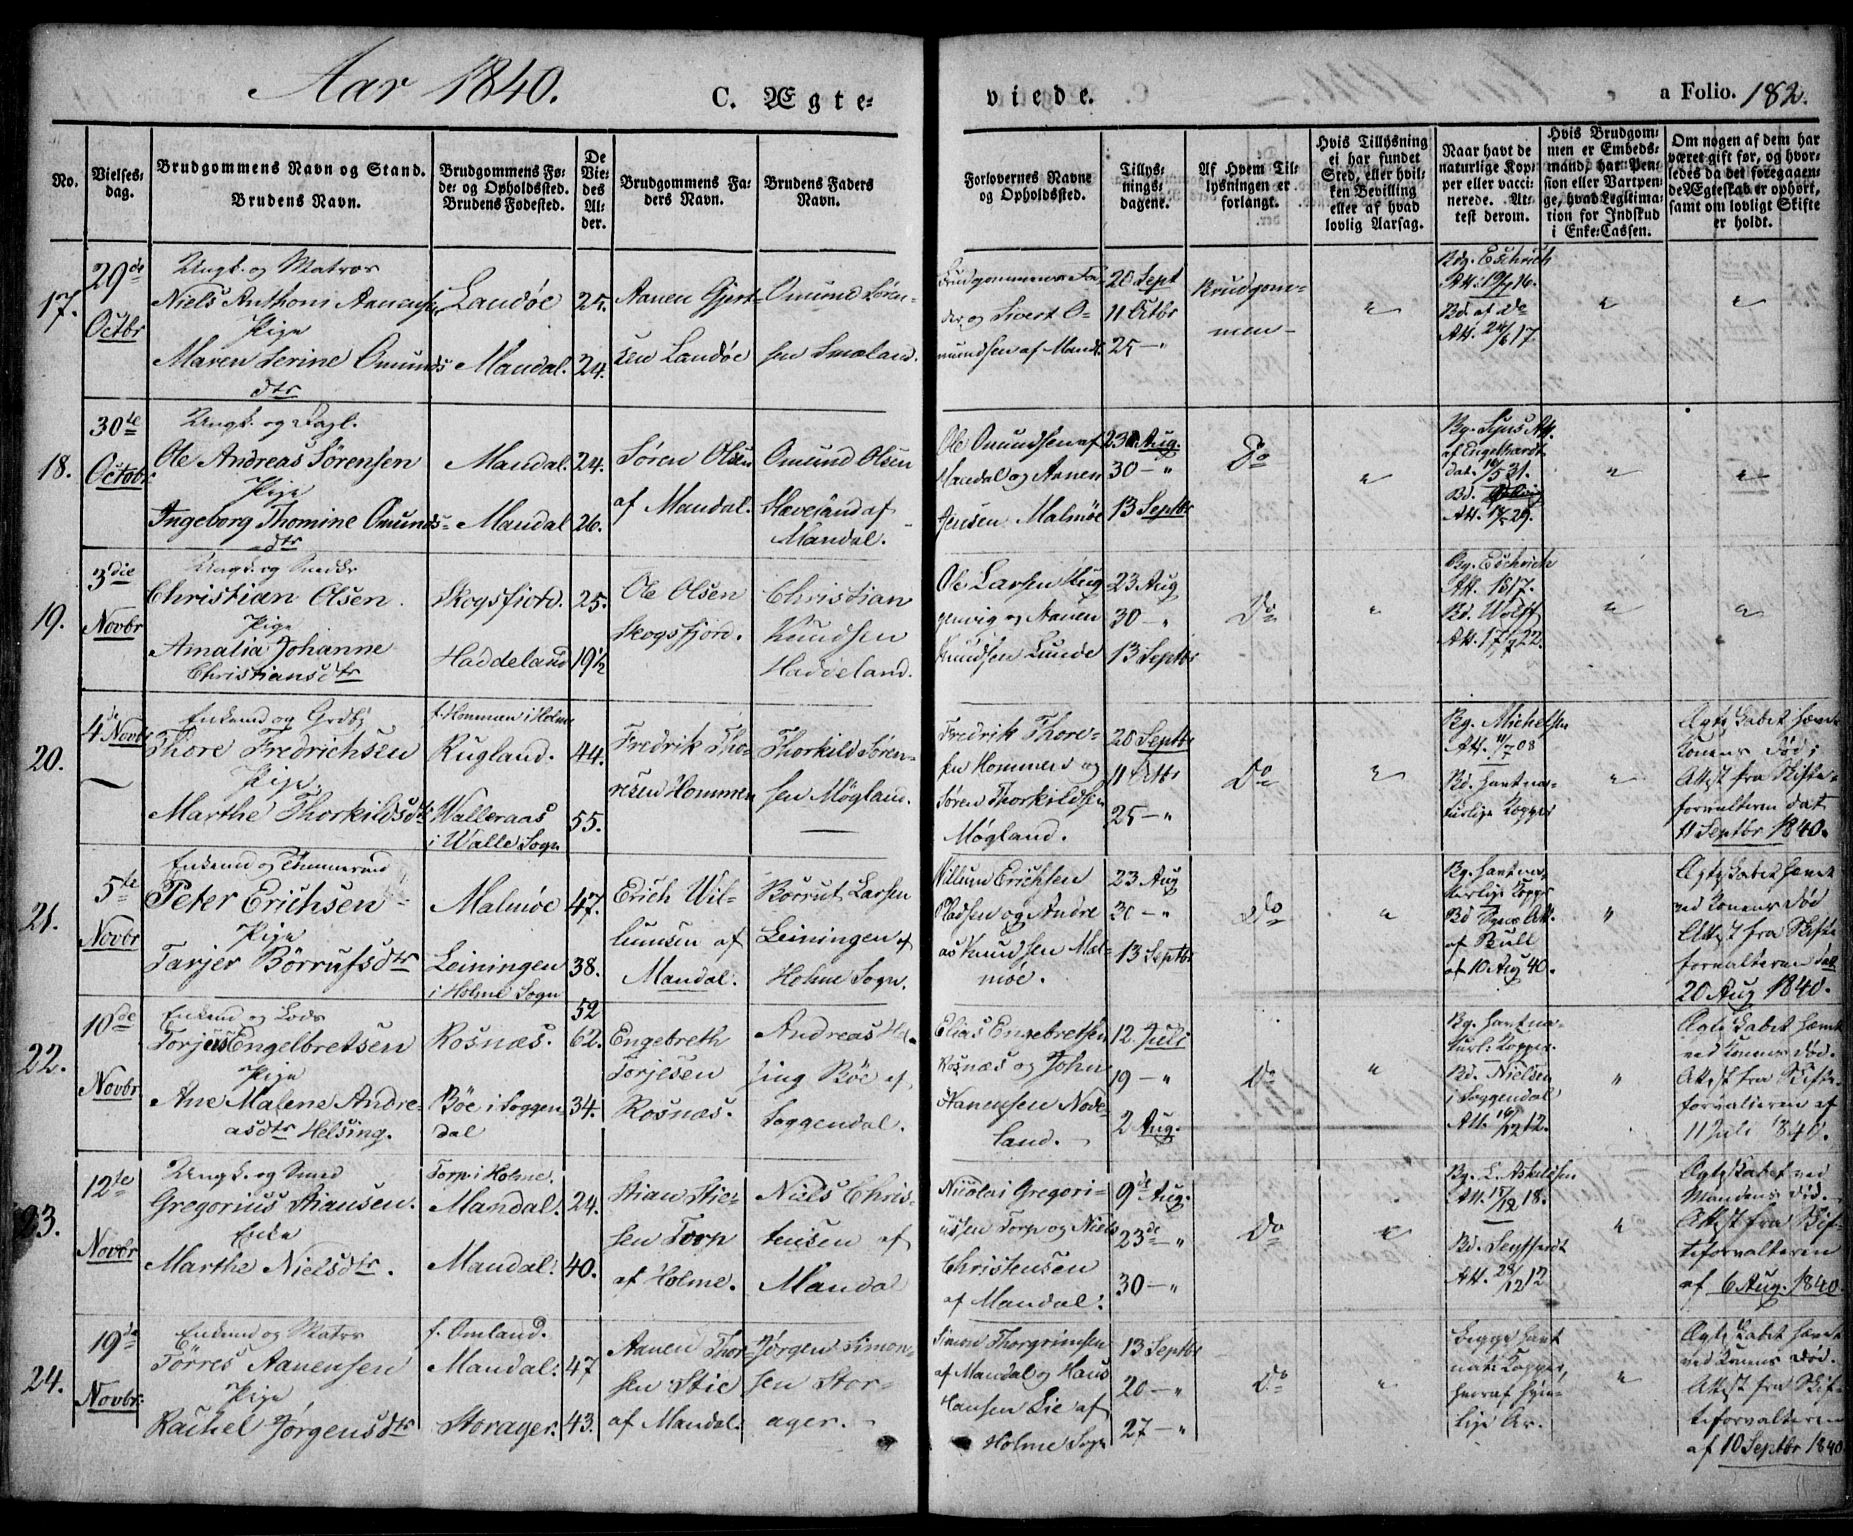 Aar 1840.
C. Ægte-
viede.
a Folio. 182.
No.
Vielses-
dag.
Brudgommens Navn og Stand.
Brudens Navn.
Brudgommens Fø-
de- og Opholdssted.
Brudens Fødested.
De
Vie-
des
Al-
der.
Brudgommens Fa-
ders Navn.
Brudens Faders
Navn.
Forlovernes Navne
og Opholdssted.
Tillys-
nings-
dagene.
Af Hvem Til-
lysningen er
forlangt.
Hvis Tillysning
ei har fundet
Sted, eller hvil-
ken Bevilling
eller af hvad
lovlig Aarsag.
Naar havt de
naturlige Kop-
per eller vacci-
nerede. At-
test derom.
Hvis Brudgom-
men er Embeds-
mand, har Pen-
sion eller Vartpen-
ge, hvad Legitima-
tion for Indskud
i Enke-Cassen.
Om nogen af dem har
været gift før, og hvor-
ledes da det foregaaen-
de Ægteskab er ophørt,
samt om lovligt Skifte
er holdt.
17.
29de
Octbr
Ungk. og Matros
Niels Anthoni Aanensen
Pige
Maren Serine Omunds-
dtr
Landøe
Mandal.
25.
24.
Aanen Gjert-
sen Landøe
Omund Søren-
sen Smaalan.
Brudgommens Fa-
der og Sivert O-
mundsen af Mandl.
20 Sept
11 Octbr
25 — "
Brudgom-
men —
"
Bdg. Eschrich
Att. 19/ 16.
Bd. af do
Att. 24/6 17.
"
"
18.
30te
Octobr.
Ungk. og Dagl.
Ole Andreas Sørensen
Pige
Ingeborg Thomine Omunds-
dtr
Mandal.
Mandal
24.
26.
Søren Olsen
af Mandal.
Omund Olsen
af
Mandal.
Ole Omundsen af
Mandal og Aanen
Jensen Malmøe
23 Aug.
30 — "
13 Septbr
Do
"
Bg. Att.
af Engelhardt
dat. 16/5 31.
Bd.
Att. 29.
"
"
19.
3die
Novbr
Ungk. og Smeder
Christian Olsen.
Pige
Amalia Johanne
Christiansdtr
Skogsfjord.
Haddeland
25.
19½
Ole Olsen
Skogsfjord.
Christian
Knudsen
Haddeland.
Ole Larsen Ung
genvig og Aanen
Knudsen Lunde
23 Aug
30 — "
13 Septbr
Do
"
Bg. Eschrich
Att. 1817.
Bd. Wolff
Att. 17/7 22.
"
"
20.
4de Novbr
Enkemd og Grdbr
Thore Fredrichsen
Pige
Marthe Thorkildsdtr
f. Hommen i Holme
Rugland.
Walleraas
i Walle Sogn
44.
55.
Fredrik Tho-
resen Hommen
Thorkild Søren-
sen Møgland.
Fredrik Thore-
sen Hommen og
Søren Thorkildsen
Møgland.
20 Septbr
11 Octbr
25 — "
Do
"
Bg. Michelsen
Att. 11/7 08
Bd. havt na-
turlige Kopper
"
Ægteskabet hævet
Konens Død;
Attest fra Skifte-
forvalteren dat
11 Septbr 1840.
21.
5te
Novbr
Enkemd og Tømmermd
Peter Erichsen
Pige
Tarjer Børrufsdtr
Malmøe
Leiningen
i Holme Sogn
47.
38.
Erich Wil-
lumsen af
Mandal.
Børrut Larsen
Leiningen af
Holme Sogn.
Willum Erichsen
Pladsen og Andre
as Knudsen Mal-
møe.
23 Aug
30 — "
13 Septbr
Do
"
Bg. havt na-
turlige Kopper
Bd Att.
af Bull
af 10 Aug 40.
"
Ægteskabet hævet
ved Konens Død
Attest fra Skifte
forvalteren dat
20 Aug 1840.
22.
10de
Novbr
Enkemd og Lods
Torjus Engelbretsen
Pige
Ane Malene Andre-
asdtr Helsing.
Rosnæs.
Bøe i Soggen
dal
52
62.
34.
Engebreth
Torjesen
Rosnæs.
Andreas Hel-
sing Bøe af
Soggendal.
Elias Engebretsen
Rosnæs og John
Aanensen Node-
land.
12. Juli
19 — "
2 Aug.
Do
"
Bg. havt na-
turl: Kopper.
Bd. Nielsen
i Soggendal
Att. 16/12 12.
"
Ægteskabet hævet
ved Konens Død.
Attest fra Skifte-
forvalteren af
11 Juli 1840.
23.
12te
Novbr
Ungk. og Smed
Gregorius Stiansen.
Enke
Marthe Nielsdtr.
Torp i Holme.
Mandal.
Mandal.
24.
40.
Stian Stie-
sen Torp
af Holme.
Niels Chris-
tensen af
Mandal
Nicolai Gregori-
ussen Torp og Niels
Christensen
af Mandal.
9de Aug.
23de — "
30 — "
Do
"
Bg. L. Askildsen
Att. 17/12 18.
Bd. Seyffardt
Att. 28/12 12
"
Ægteskabet ved
Mandens Død.
Attest fra Skif-
teforvalteren
af 6 Aug. 1840
24.
19de
Novbr.
Enkemd og Matros
Tørres Aanensen
Pige
Rachel Jørgensdtr
f. Omland.
Mandal.
Storager.
47
43.
Aanen Thor-
sen Stie
af Mandal.
Jørgen Simon-
sen Stor-
ager.
Simon Thorgrimsen
af Mandal og Hans
Hansen Lie af
Holme Sogn
13 Septbr
20 — "
27 — "
Do
"
Begge havt
natl Kopper,
hvoraf syn-
lige Ar.
"
Ægteskabet hævet
ved Konens Død.
Attest fra Skif-
teforvalteren
af 10 Septbr 1840